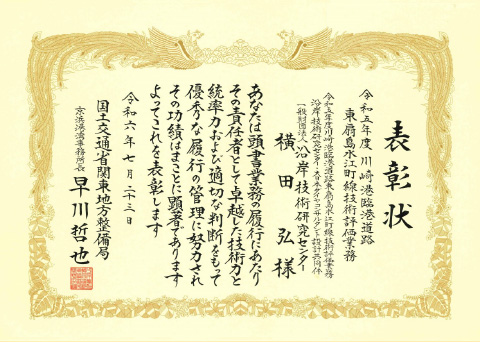 表彰状
令和五年度 川崎港臨港道路
東扇島水江町線技術評価業務
令和五年度川崎港臨港道路東扇島水江町線技術評価業務
沿岸技術研究センター・大日本ダイヤコンサルタント設計共同体
一般財団法人 沿岸技術研究センター
横田 弘 様
あなたは頭書業務の履行にあたり
その責任者として卓越した技術力と
統率力および適切な判断をもって
優秀な履行の管理に努力され
その功績はまことに顕著であります
よってこれを表彰します
令和六年七月二十三日
国土交通省関東地方整備局
京浜港湾事務所長 早川哲也